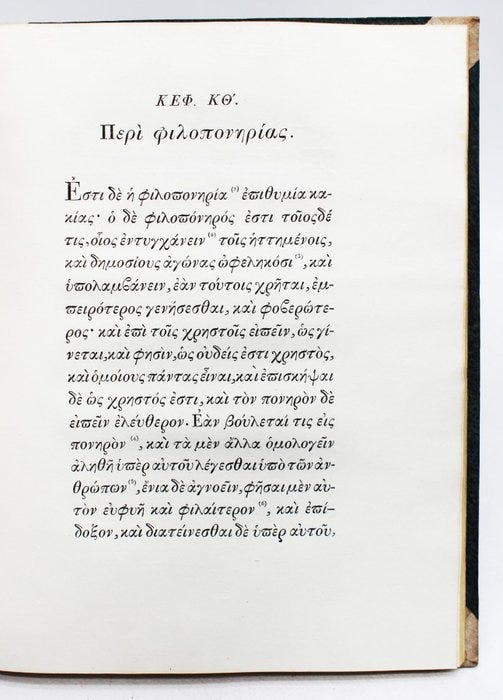 ΚΕΦ. ΚΘ'.
Περὶ φιλοπονηρίας.
Ἔστι δὲ ἡ φιλοπονηρία (1) ἐπιθυμία κα-
κίας· ὁ δὲ φιλοπόνηρός ἐστι τοῖοςδέ
τις, οἷος ἐντυγχάνειν (2) τοῖς ἡττημένοις,
καὶ δημοσίους ἀγῶνας ὠφεληκόσι (3), καὶ
ὑπολαμβάνειν, ἐὰν τούτοις χρῆται, ἐμ-
πειρότερος γενήσεσθαι, καὶ φοβερώτε-
ρος· καὶ ἐπὶ τοῖς χρηστοῖς εἰπεῖν, ὡς γί-
νεται, καὶ φησὶν, ὡς οὐδείς ἐστι χρηστὸς,
καὶ ὁμοίους πάντας εἶναι, καὶ ἐπισκῆψαι
δὲ ὡς χρηστός ἐστι, καὶ τὸν πονηρὸν δὲ
εἰπεῖν ἐλεύθερον. Ἐὰν βούλεταί τις εἰς
πονηρὸν (4), καὶ τὰ μὲν ἄλλα ὁμολογεῖν
ἀληθῆ ὑπὲρ αὐτοῦ λέγεσθαι ὑπὸ τῶν ἀν-
θρώπων (5), ἔνια δὲ ἀγνοεῖν, φῆσαι μὲν αὐ-
τὸν εὐφυῆ καὶ φιλαίτερον (6), καὶ ἐπί-
δοξον, καὶ διατείνεσθαι δὲ ὑπὲρ αὐτοῦ,